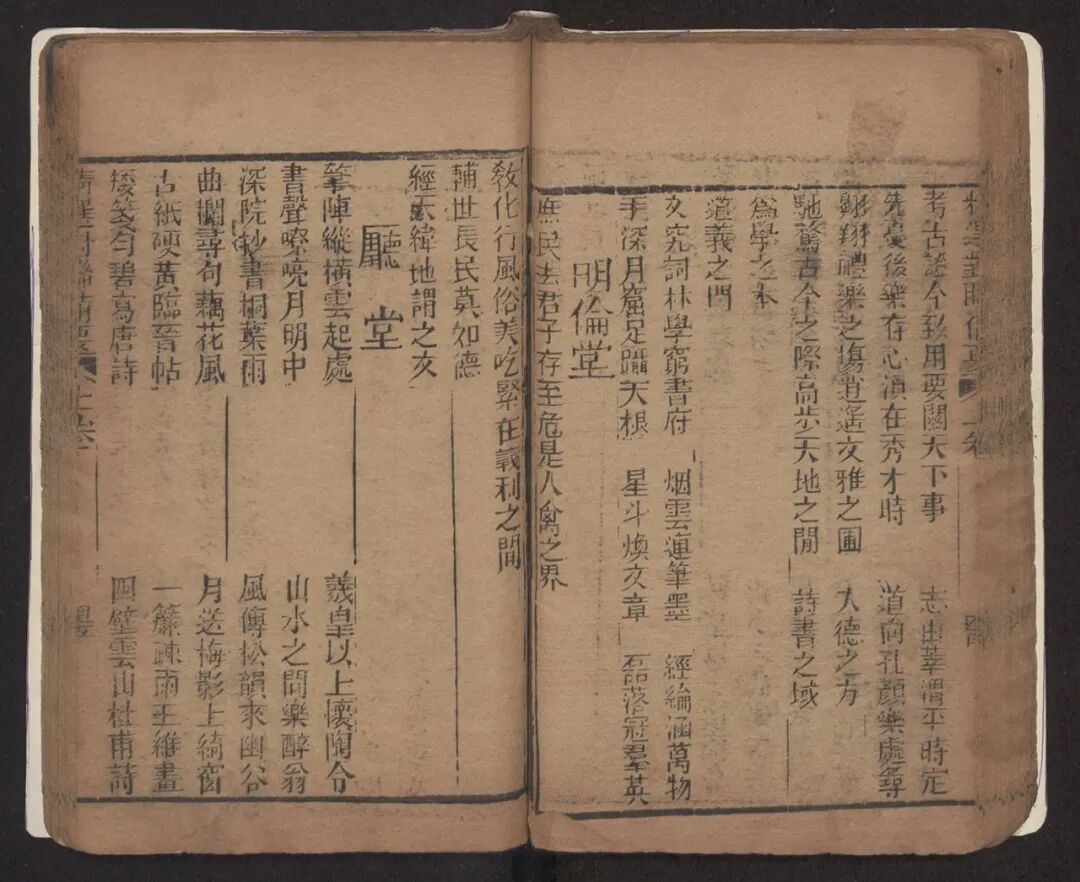 考古證今致用要關天下事 志出莘渭平時定
先憂後樂在心湏在秀才時 道向孔顏樂處尋
翺翔禮樂之塲逍遙文雅之圃 大德之方
馳騖古今之際高步天地之間 詩書之域
爲學之本
道義之門
文究詞林學窮書府 烟雲運筆墨 經綸涵萬物
手深月窟足躡天根 星斗煥文章 磊落冠羣英
明倫堂
庶民去君子存至危是人禽之界
敎化行風俗美吃緊在義利之間
輔世長民莫如德
經天緯地謂之文
廳堂
筆陣縱橫雲起處 羲皇以上懷陶令
書聲嘹亮月明中 山水之間樂醉翁
深院抄書桐葉雨 風傳松韻來幽谷
曲欄尋句藕花風 月送梅影上綺窗
古紙硬黃臨晉帖 一簾疎雨王維畫
矮箋勻碧寫唐詩 四壁雲山杜甫詩
上卷